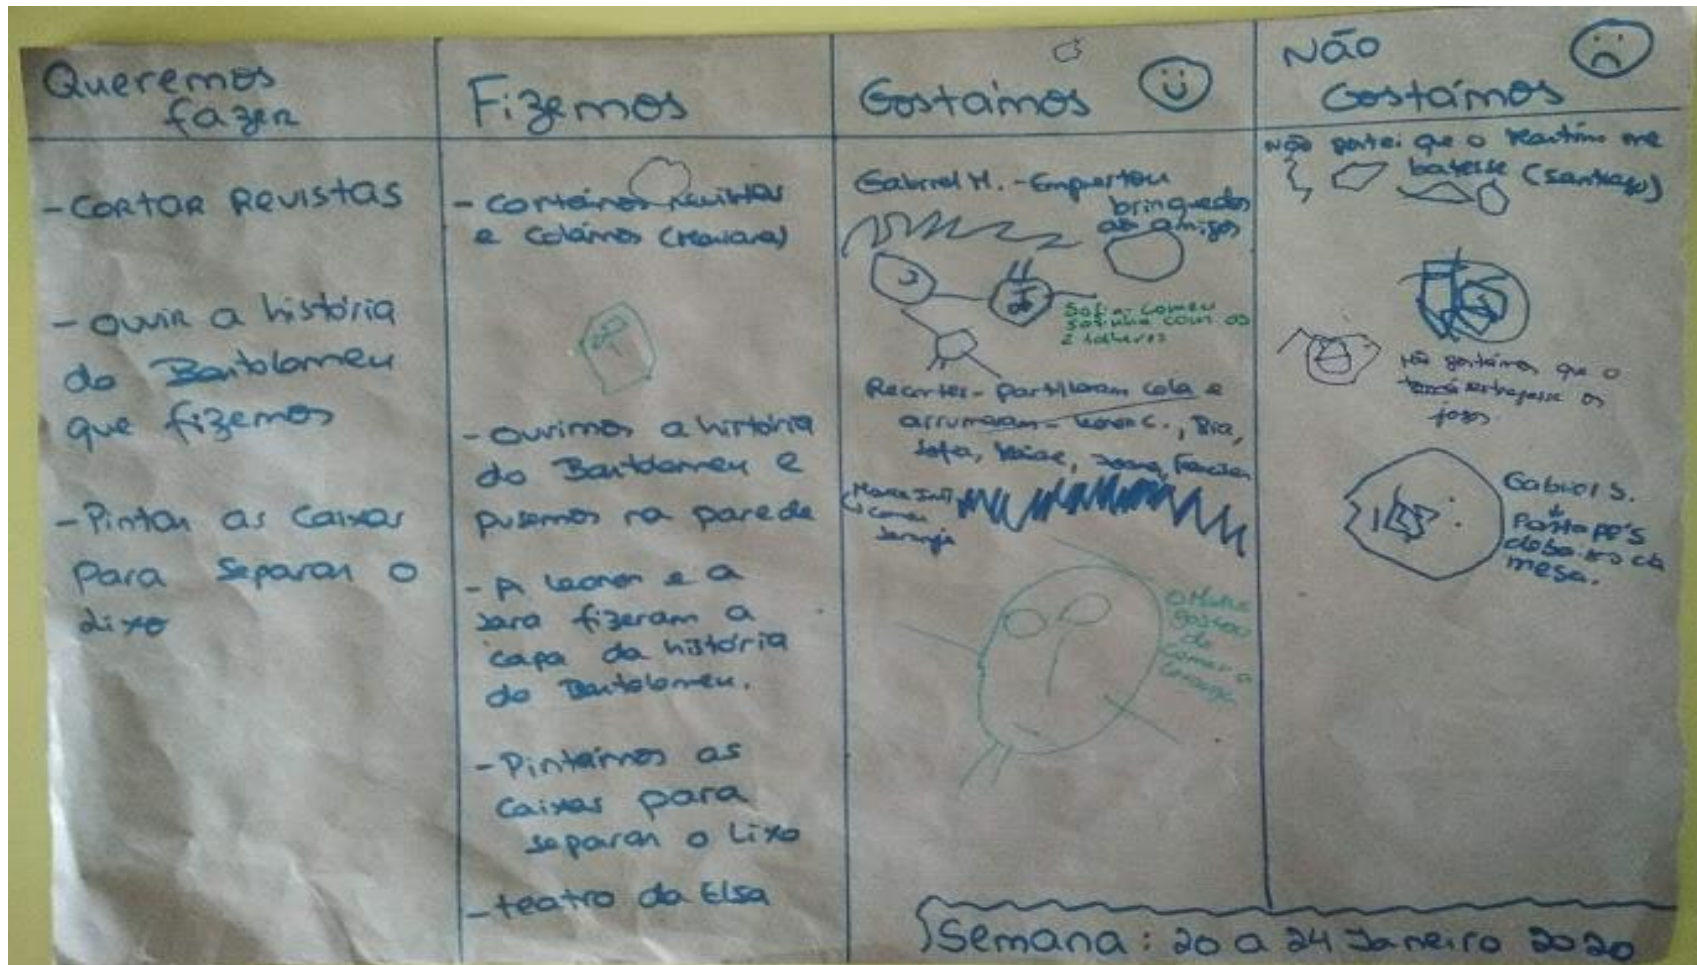 Queremos
fazer
- Cortar Revistas
- ouvir a história
do Bartolomeu
que fizemos
- Pintar as caixas
para separar o
lixo
Fizemos
- Cortámos revistas
e colámos
- ouvimos a história
do Bartolomeu e
pusemos na parede
- A Leonor e a
Sara fizeram a
capa da história
do Bartolomeu.
- Pintámos as
caixas para
separar o lixo
- teatro da Elsa
Gostámos
Gabriel M. - Emprestou
brinquedos
ao amigos
Sofia - comeu
sozinha com os
2 talheres
Recortes - Partilharam cola e
arrumaram - Leonor C., Bia,
Joana,
comeu
laranja
gostou
de
comer a
laranja
Não
Gostámos
Não gostei que o Martim me
batesse (Santiago)
Não gostámos que o
estragasse os
jogos
Gabriel S.
Pés
debaixo da
mesa.
Semana: 20 a 24 Janeiro 2020